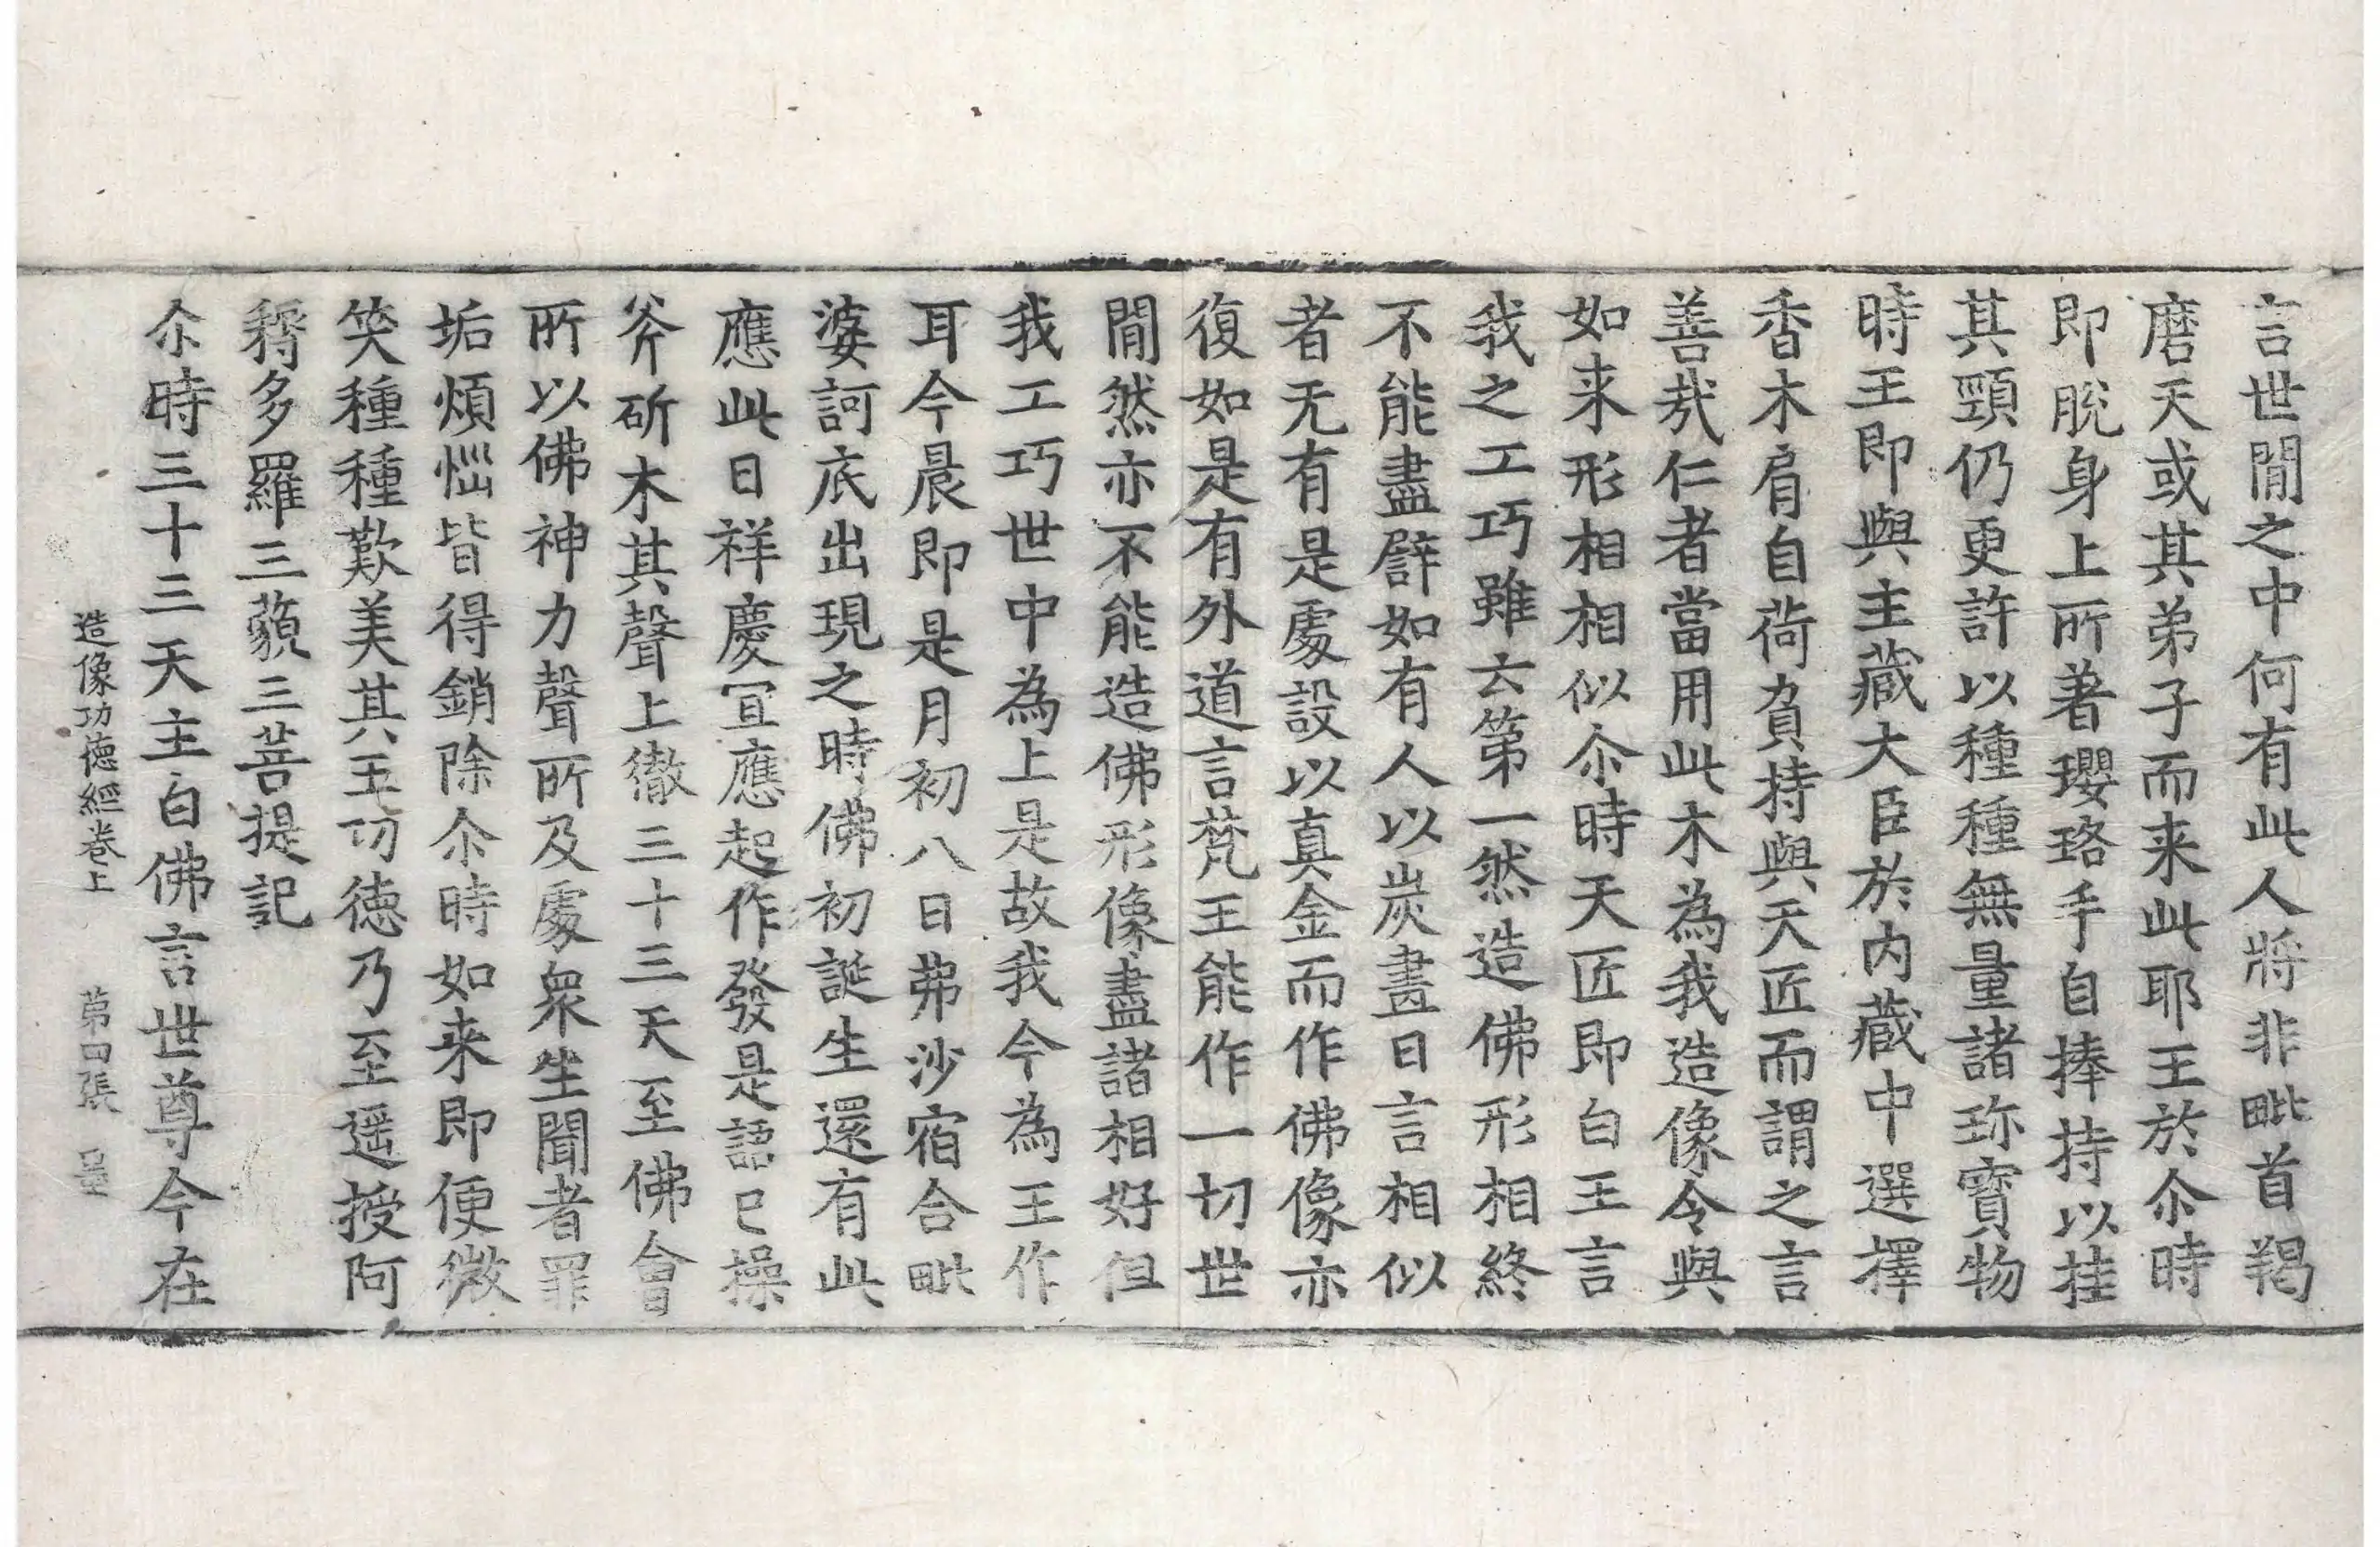 言世閒之中何有此人將非毗首羯
磨天或其弟子而来此耶王於尒時
即脫身上所著瓔珞手自捧持以挂
其頸仍更許以種種無量諸珎寶物
時王即與主藏大臣於内藏中選擇
香木肩自荷負持與天匠而謂之言
善哉仁者當用此木為我造像令與
如来形相相似尒時天匠即白王言
我之工巧雖云第一然造佛形相終
不能盡譬如有人以炭畫日言相似
者无有是處設以真金而作佛像亦
復如是有外道言梵王能作一切世
閒然亦不能造佛形像盡諸相好但
我工巧世中為上是故我今為王作
耳今晨即是月初八日弗沙宿合毗
婆訶底出現之時佛初誕生還有此
應此日祥慶宜應起作發是語已操
斧斫木其聲上徹三十三天至佛會
所以佛神力聲所及處衆生聞者罪
垢煩惱皆得銷除尒時如来即便微
笑種種歎美其王功德乃至遥授阿
耨多羅三藐三菩提記
尒時三十三天主白佛言世尊今在
造像功德經卷上 第四張 量